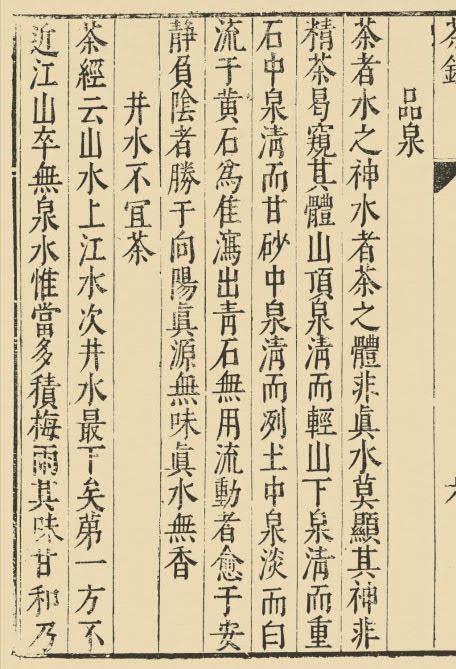 茶錄
品泉
茶者水之神水者茶之體非眞水莫顯其神非
精茶曷窺其體山頂泉淸而輕山下泉淸而重
石中泉淸而甘砂中泉淸而冽土中泉淡而白
流于黄石爲佳瀉出靑石無用流動者愈于安
静負陰者勝于向陽眞源無味眞水無香
井水不宜茶
茶經云山水上江水次井水最下矣第一方不
近江山卒無泉水惟當多積梅雨其味甘和乃